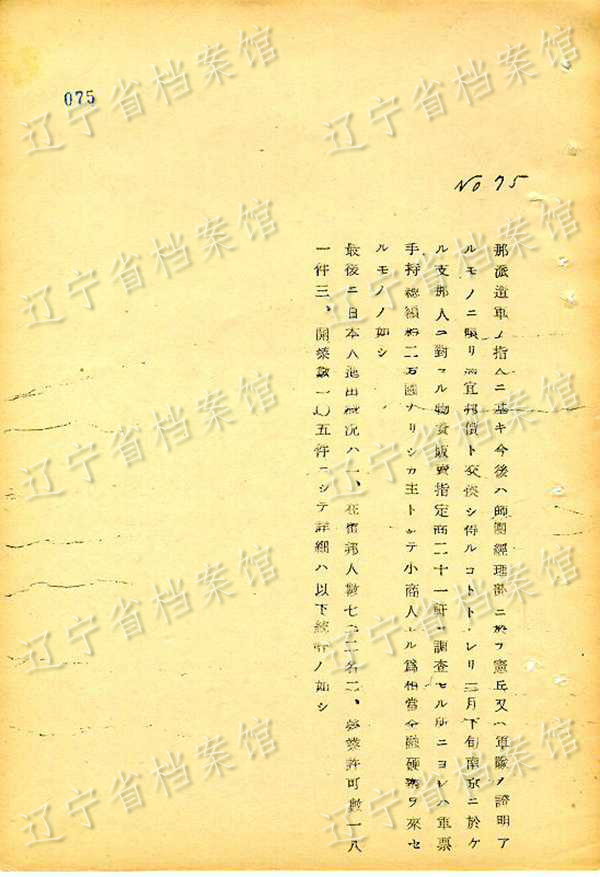 075
No 75
那派遣軍ノ指令ニ基キ今後ハ師團經理部ニ於テ憲兵又ハ軍隊ノ證明ア
ルモノニ限リ適宜邦債ト交換シ得ルコトトナレリ三月下旬南京ニ於ケ
ル支那人ニ對スル物資販賣指定商二十一軒ヲ調査セル所ニヨレハ軍票
手持總額約二万圓ナリシカ主トシテ小商人ナル為相當金融硬塞ヲ來セ
ルモノノ如シ
最後ニ日本人進出概況ハ一、在留邦人數七 二名二、營業許可數一八
一件三、開業數一〇五件ニシテ詳細ハ以下統計ノ如シ
辽宁省档案馆
辽宁省档案馆
辽宁省档案馆
辽宁省档案馆
辽宁省档案馆
辽宁省档案馆
辽宁省档案馆
辽宁省档案馆
辽宁省档案馆
辽宁省档案馆